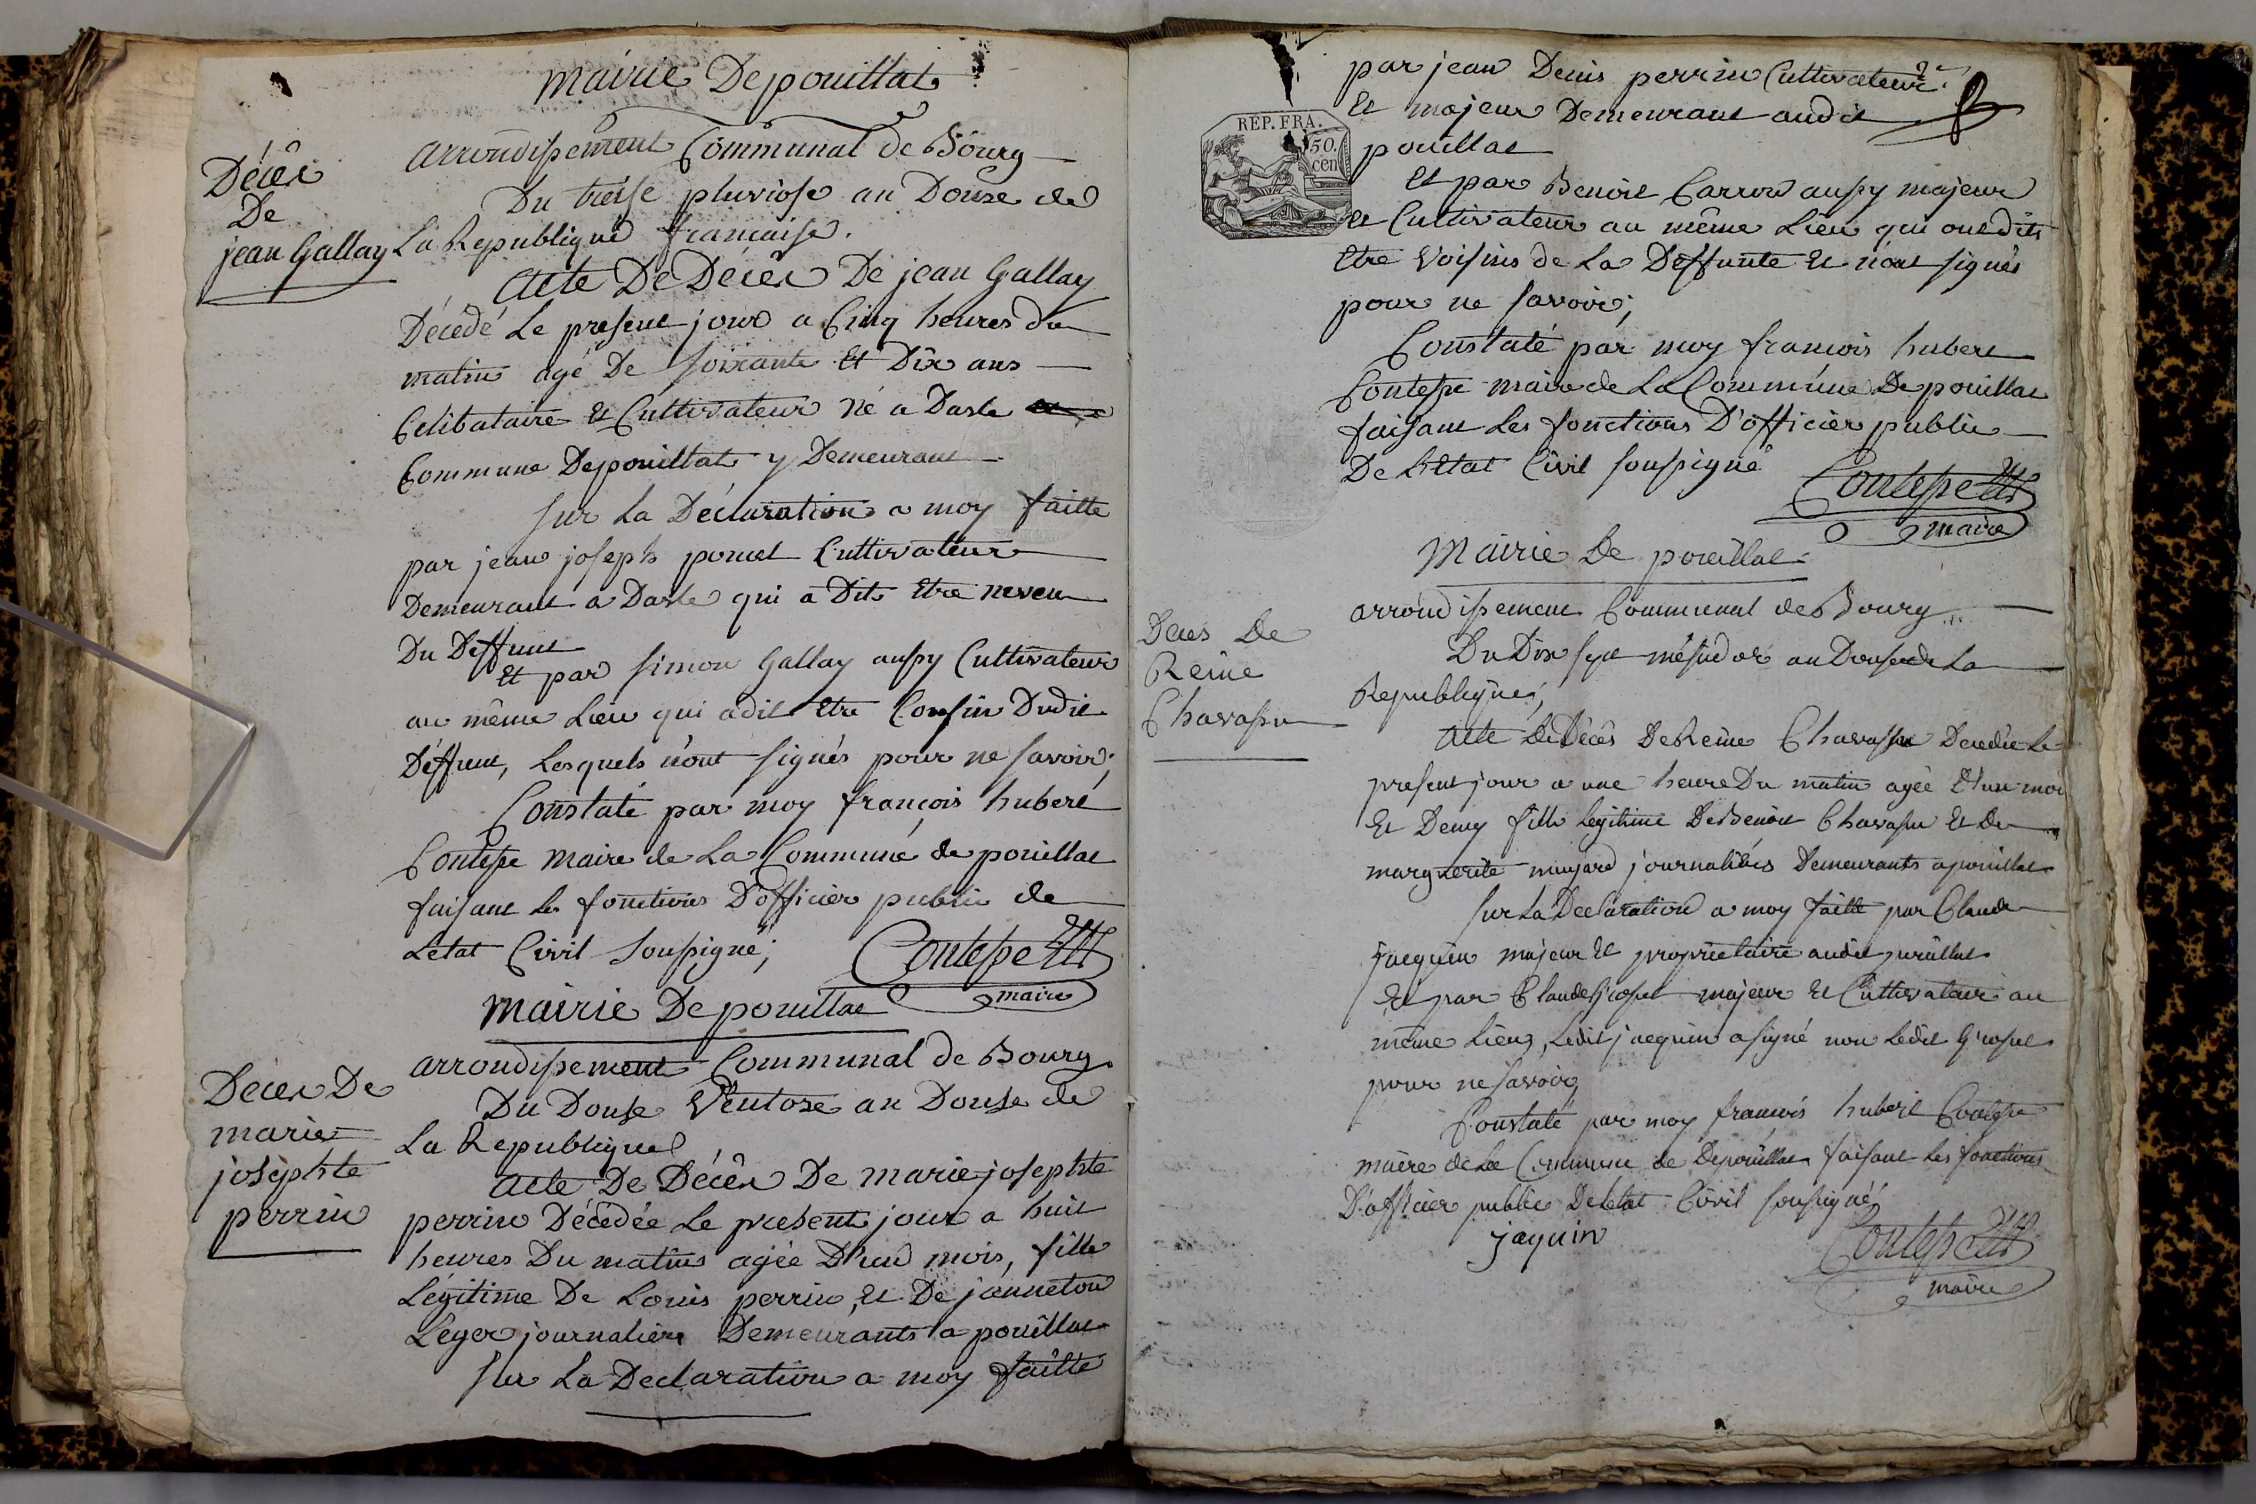 Mairie De pouillat
Décès
De
jean Gallay
arrondissement Communal de Bourg
Du treise pluviose an Douze de
La Republique francaise.
Acte De Décès De jean Gallay
Décedé Le present jour a Cinq heures du
matin agé De soixante Et Dix ans
Celibataire Et Cultivateur Né a Dasle
Commune De pouillat y Demeurant
sur La Déclaration a moy faitte
par jean joseph poncet Cultivateur
Demeurant a Dasle qui a Dit Etre neveu
Du Deffunt
Et par simon Gallay aussy Cultivateur
au même Lieu qui a dit Etre Cousin Dudit
Déffunt, Lesquels n'ont signés pour ne savoir;
Constaté par moy françois hubert
Contesse Maire de La Commune de pouillat
faisant les fonctions D'officier public de
L'état Civil soussigné;
Contesse
maire
Mairie De pouillat
Décès De
marie
josephte
perrin
arrondissement Communal de Bourg
Du Douse Ventose an Douse de
La Republique
Acte De Décès De marie josephte
perrin Décédée Le present jour a huit
heures Du matins agée D'un mois, fille
Légitime De Louis perrin, Et De janneton
Léger journaliers Demeurants a pouillat
sur La Declaration a moy faitte
par jean Denis perrin Cultivateur
Et majeur Demeurant audit
pouillat
REP. FRA.
50.
cen
Et par Benoit Carron aussy majeur
Et Cultivateur au même Lieu qui ont dits
Etre Voisins de La Deffunte Et n'ont signés
pour ne savoir;
Constaté par moy francois hubert
Contesse maire de La Commune De pouillat
faisant Les fonctions D'officier public
De L'Etat Civil soussigné
Contesse
maire
Mairie De pouillat
arrondissement Communal de Bourg
Deces De
Reine
Chavassu
Du Dix sept méssidor an Douse de La
Republique;
Acte De Décès De Reine Chavassu Decedée Le
present jour a une heure Du matin agée D'un moi
Et Demy fille Legitime De Benoit Chavassu Et De
marguerite journaliers Demeurants a pouillat
sur La Declaration a moy faitte par Claude
jacquin majeur Et proprietaire audit pouillat
Et par Claude majeur Et Cultivateur au
même Lieu, Ledit jacquin a signé non Ledit
pour ne savoir,
Constaté par moy francois hubert Contesse
maire de La Commune de De pouillat faisant Les fonctions
D'officier public De Letat Civil soussigné
jaquin
Contesse
maire